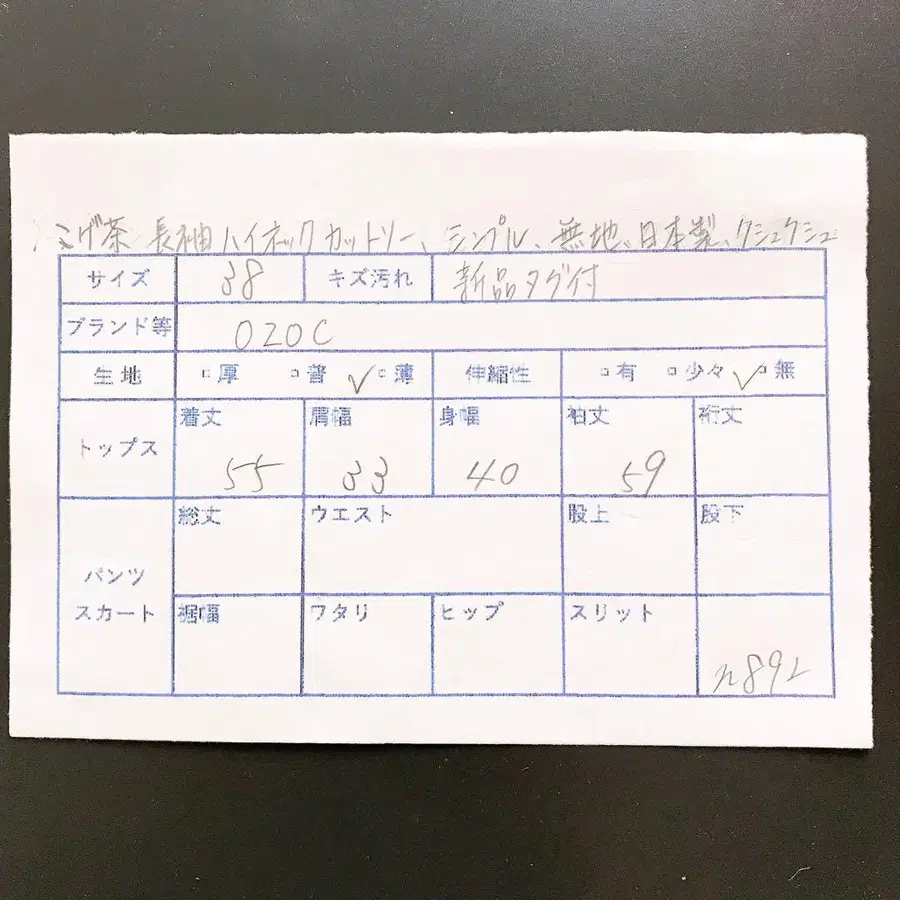 こげ茶 長袖ハイネックカットソー、シンプル、無地、日本製、クシュクシュ
サイズ 38 キズ汚れ 新品タグ付
ブランド等 OZOC
生地 □厚 □普 ✓□薄 伸縮性 □有 □少々 ✓□無
トップス 着丈 55 肩幅 33 身幅 40 袖丈 59 裄丈
パンツ
スカート
総丈 ウエスト 股上 股下
裾幅 ワタリ ヒップ スリット n892